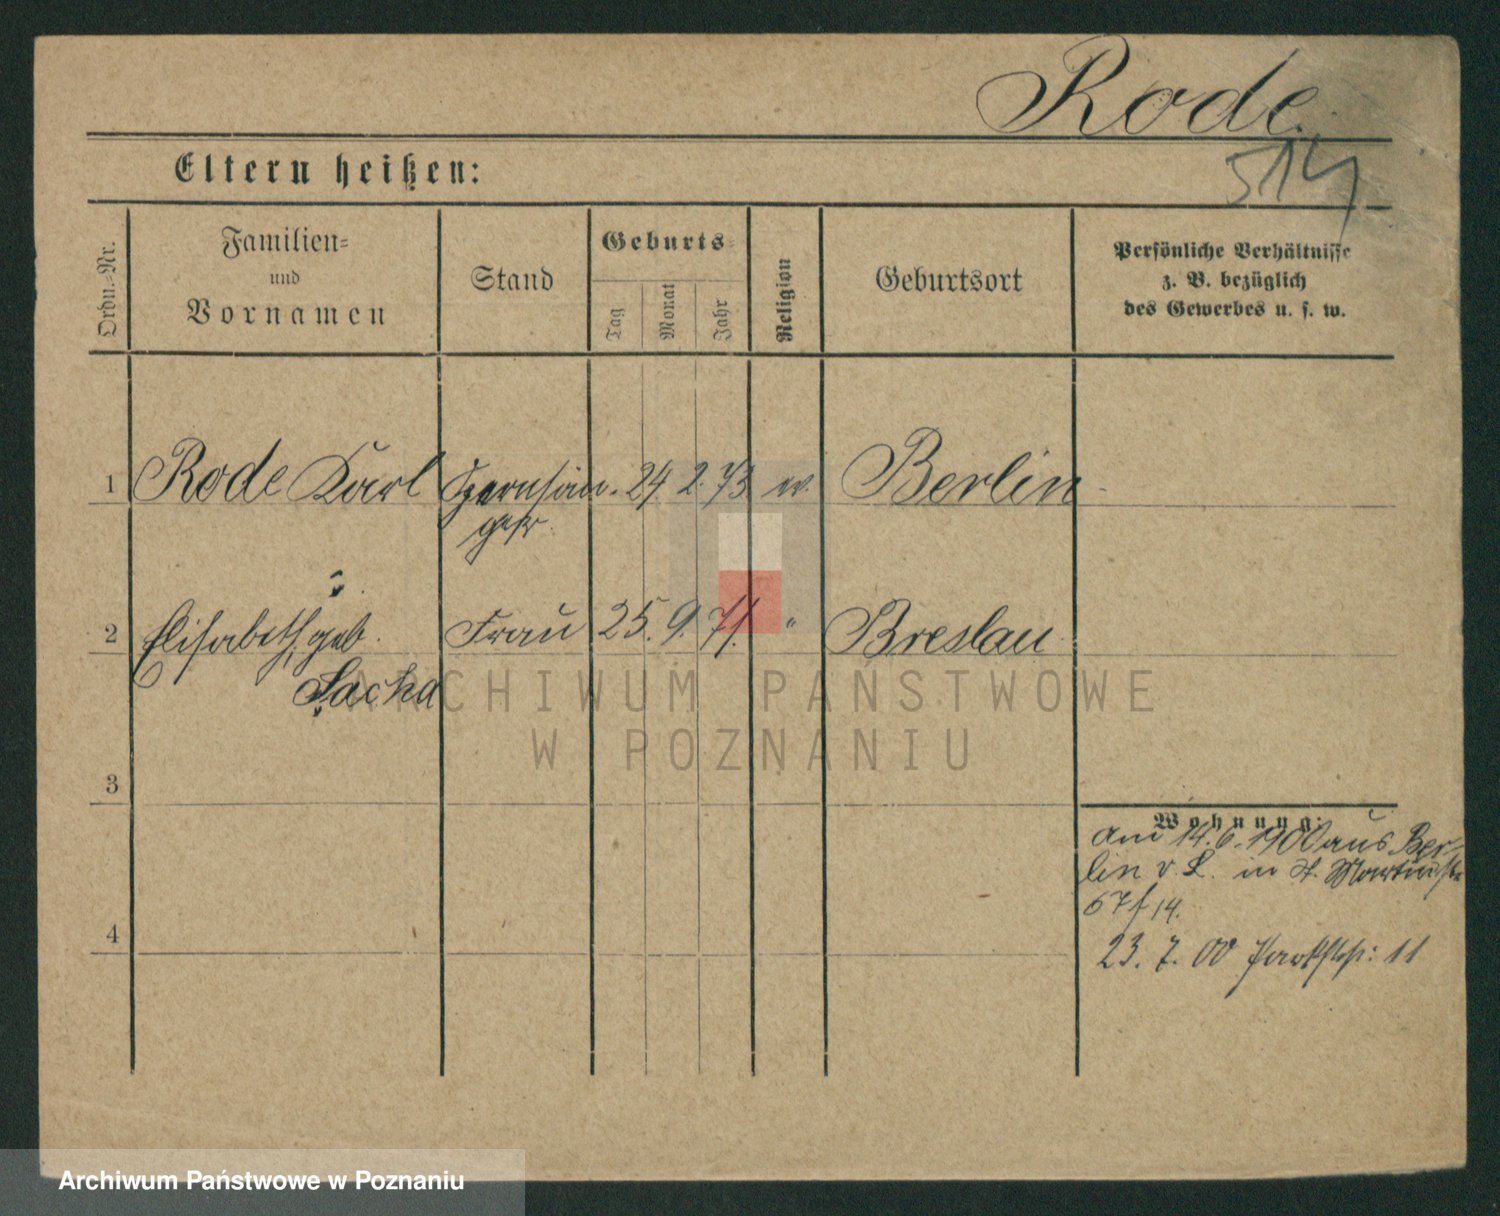 Rode.
Eltern heißen:
514
Ordn.-Nr.
Familien-
und
Vornamen
Stand
Geburts-
Tag
Monat
Jahr
Religion
Geburtsort
Persönliche Verhältnisse
z. B. bezüglich
des Gewerbes u. s. w.
1 Rode Karl Opernsän- 24. 2. 73 ev. Berlin
ger.
2 Elisabeth, geb. Frau 25. 9. 71. " Breslau
Sacha
ARCHIWUM PAŃSTWOWE
W POZNANIU
3
4
Wohnung:
Am 14. 6. 1900 aus Ber-
lin in St. Martinstr
67 14.
23. 7. 00 Parkstr: 11
Archiwum Państwowe w Poznaniu